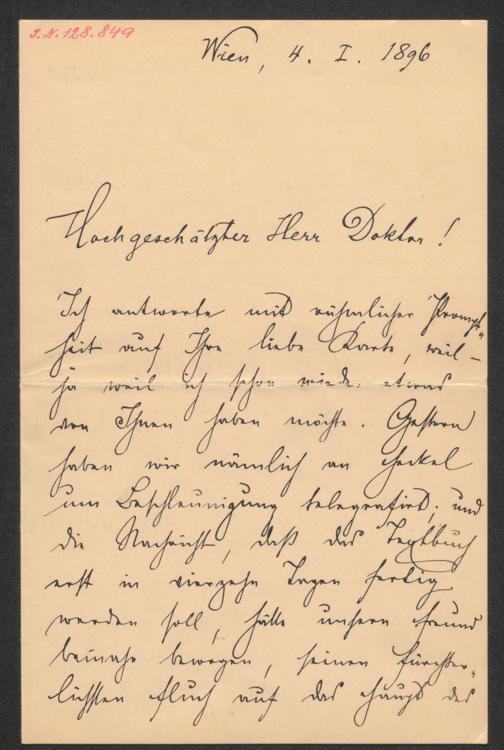 I.N. 128.849
Wien, 4. I. 1896
Hochgeschätzter Herr Doktor!
Ich antworte mit rühmlicher Prompt-
heit auf Ihre liebe Karte, weil –
ja weil ich schon wieder etwas
von Ihnen haben möchte. Gestern
haben wir nämlich an Heckel
um Beschleunigung telegrafirt; und
die Nachricht, daß das Textbuch
erst in vierzehn Tagen fertig
werden soll, hätte unsern Freund
beinahe bewogen, seinen fürchter-
lichsten Fluch auf das Haupt des